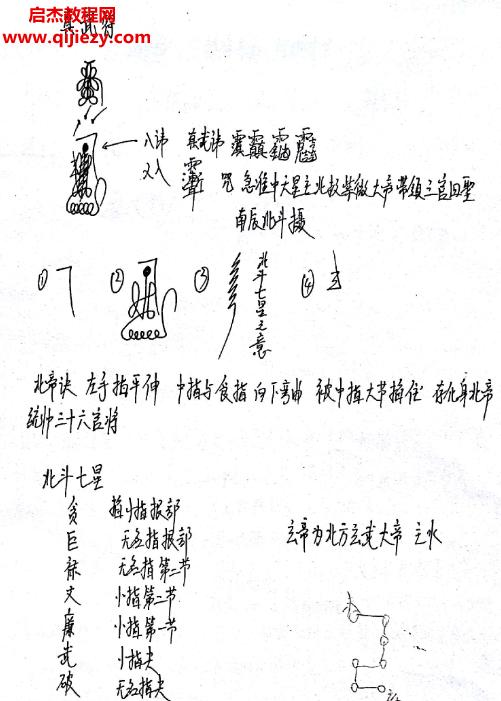 启杰教程网
www.qijiezy.com
真武符
入讳 真武讳
又入
咒 急准中天星主北极紫微大帝带领三官四圣
南辰北斗摄
① ② ③ 北斗七星之意 ④
北帝诀 左手指平伸 中指与食指向下弯曲 被中指大节掐住 存化身北帝
统帅三十六官将
北斗七星
贪 掐小指根部
巨 无名指根部
禄 无名指第二节
文 小指第二节
廉 小指第一节
武 小指尖
破 无名指尖
玄帝为北方玄武大帝 主水